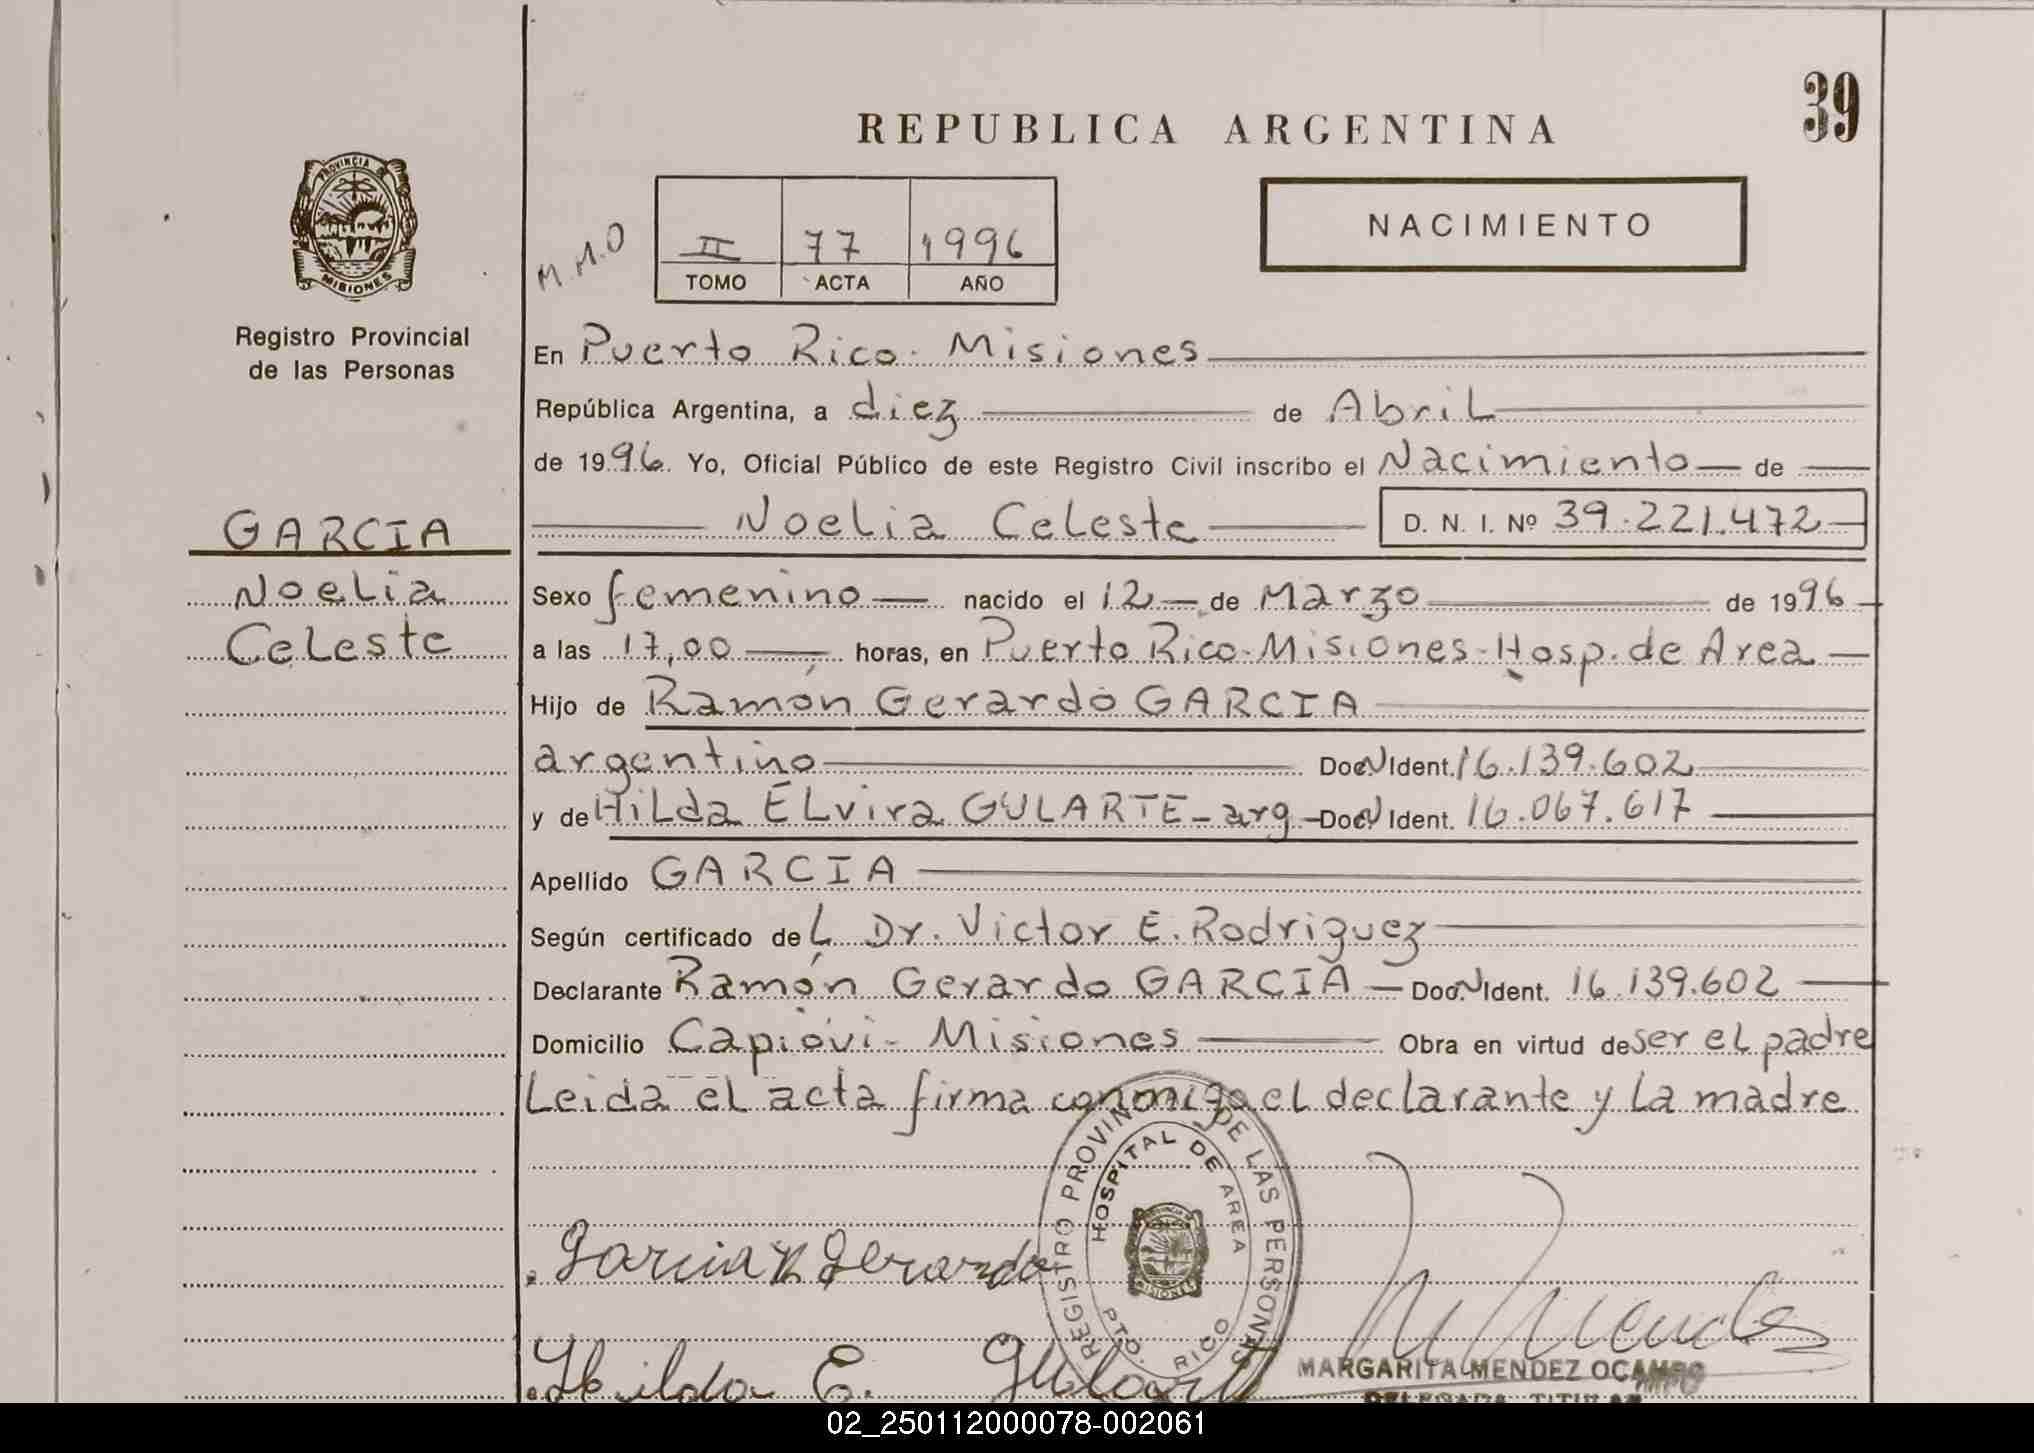 39
REPUBLICA ARGENTINA
PROVINCIA DE
MISIONES
NACIMIENTO
M.M.O
II 77 1996
TOMO ACTA AÑO
Registro Provincial
de las Personas
En Puerto Rico - Misiones
República Argentina, a diez de Abril
de 1996. Yo, Oficial Público de este Registro Civil inscribo el Nacimiento de
GARCIA
Noelia Celeste D. N. I. Nº 39.221.472
Noelia
Sexo femenino nacido el 12 de Marzo de 1996
Celeste
a las 17,00 horas, en Puerto Rico-Misiones-Hosp. de Area
Hijo de Ramón Gerardo GARCIA
argentino Doc.N Ident. 16.139.602
y de Hilda ELvira GULARTE - arg - Doc.N Ident. 16.067.617
Apellido GARCIA
Según certificado deL Dr. Victor E. Rodriguez
Declarante Ramón Gerardo GARCIA - Doc.N Ident. 16.139.602
Domicilio Capiovi - Misiones Obra en virtud de ser el padre
Leida el acta firma conmigo el declarante y la madre
REGISTRO PROVIN DE LAS PERSONAS
HOSPITAL DE AREA
PTO. RICO
MISIONES
Garcia R Gerardo
Hilda E. Gularte
M Mendez
MARGARITA MENDEZ OCAMPO
DELEGADA TITULAR
02_250112000078-002061